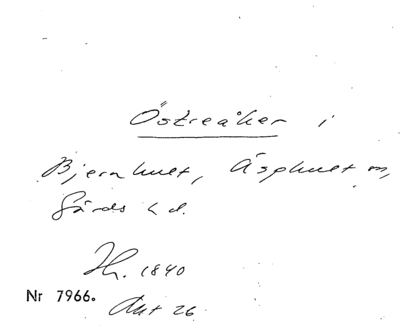 Östreåker i
Bjernhult, Äsphult sn,
Gärds hd.
Hr. 1840
Nr 7966.
Akt 26